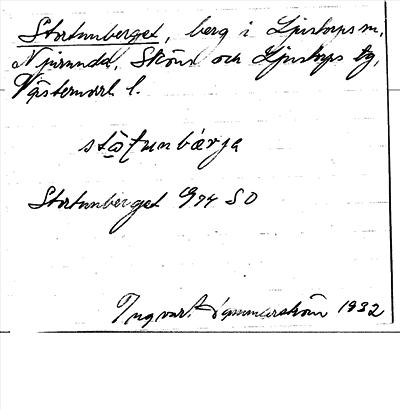 Stortunberget, berg i Ljustorps sn,
Njurunda, Sköns och Ljustorps tg,
Västernorrl l.
stòṭunbærja
Stortunberget G94 SO
Ingvar Hammarström 1932